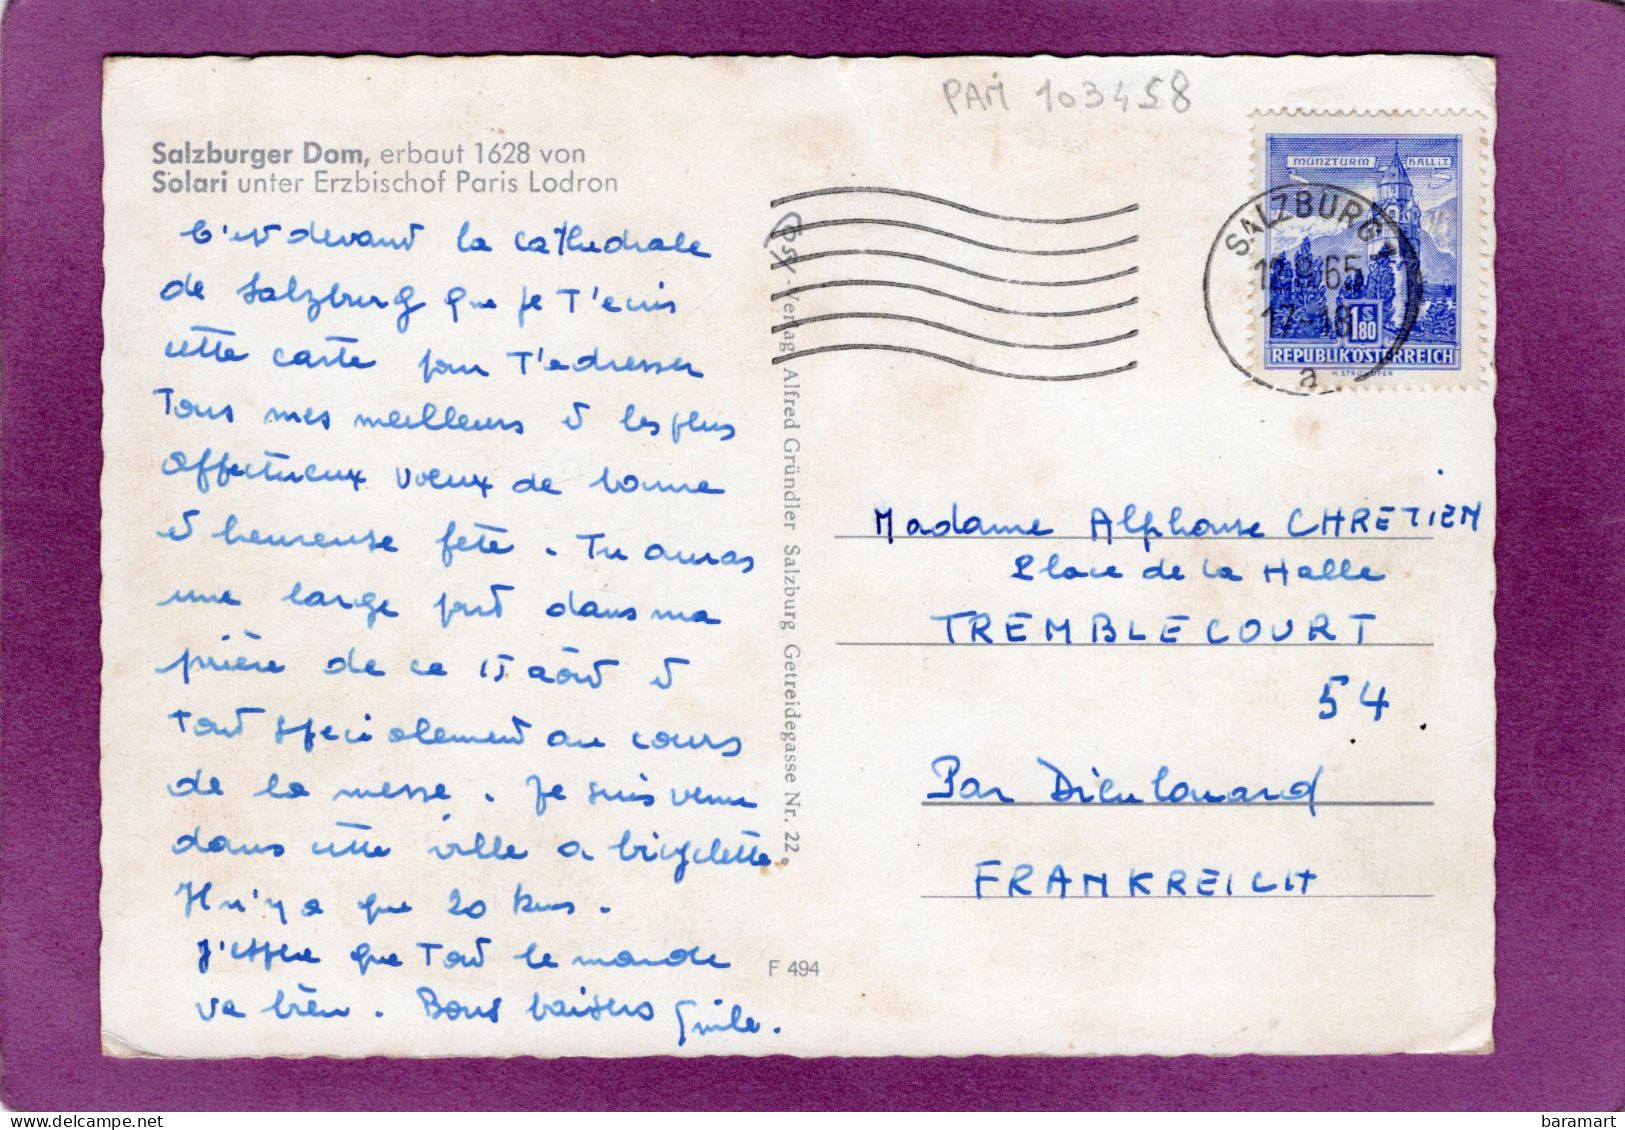 PAM 103458
Salzburger Dom, erbaut 1628 von
Solari unter Erzbischof Paris Lodron
C'est devant la cathedrale
de Salzburg que je t'ecris
cette carte pour t'adresser
Tous mes meilleurs et les plus
affectueux voeux de bonne
et heureuse fête. Tu auras
une large part dans ma
prière de ce 15 août et
tout spécialement au cours
de la messe. Je suis venu
dans cette ville a bicyclette.
Il n'y a que 20 kms.
J'espère que tout le monde
va bien. Bons baisers Emile.
-Verlag Alfred Gründler Salzburg Getreidegasse Nr. 22.
F 494
MÜNZTURM HALL i.T.
SALZBURG
12.8.65
17-18
a
S 1.80
REPUBLIK ÖSTERREICH
H. STROHOFER
Madame Alphonse CHRETIEN
Place de la Halle
TREMBLECOURT
54
Par Dieulouard
FRANKREICH
delcampe.net
baramart